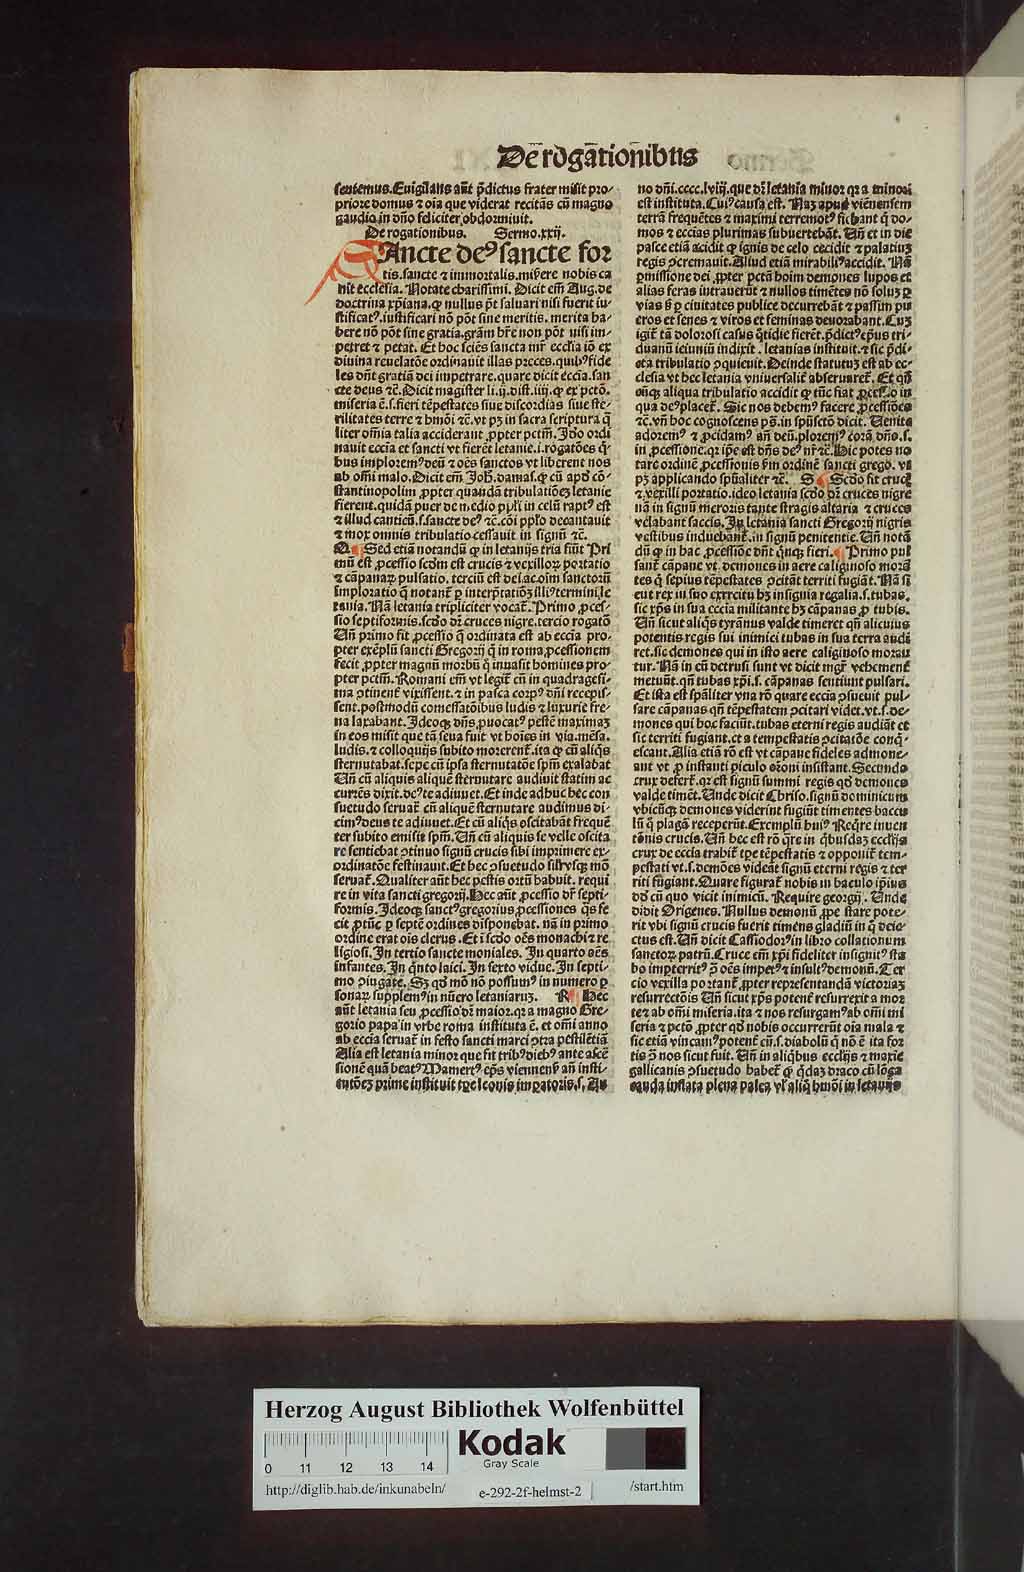 De rogationibus
seniemus. Euigilans aūt p̄dictus frater misit pro-
priore domus ⁊ oīa que viderat recitās cū magno
gaudio in dn̄o feliciter obdormiuit.
De rogationibus. Sermo.xxij.
SAncte deꝰ sancte for
tis. sancte ⁊ immortalis. miẜere nobis ca
nit ecclesia. Notate charissimi. Dicit em̄ Aug. de
doctrina xp̄iana. ꝙ nullus pōt saluari nisi fuerit iu-
stificatꝰ. iustificari nō pōt sine meritis. merita ha-
bere nō pōt sine gratia. grām hr̄e non pōt nisi im-
petret ⁊ petat. Et hoc sciēs sancta mr̄ ecclīa iō ex
diuina reuelatōe ordinauit illas preces. quibꝰ fide
les dn̄t gratiā dei impetrare. quare dicit eccīa. san
cte deus ⁊c̄. Dicit magister li.ij. dist.iiij. ꝙ ex pctō.
miseria ē. s. fieri tēpestates siue discordias siue ste-
rilitates terre ⁊ hmōi ⁊c̄. vt pꝫ in sacra scriptura q̄
liter om̄ia talia acciderant ꝓpter pctm̄. Ideo ordi
nauit eccīa et sancti vt fierēt letanie. i. rogatōes q̇
bus imploremꝰ deū ⁊ oēs sanctos vt liberent nos
ab om̄i malo. Dicit em̄ Joh̄. damas. ꝙ cū apd̄ cō-
stantinopolim ꝓpter quandā tribulatiōeꝫ letanie
fierent. quidā puer de medio ppl̄i in celū raptꝰ est
⁊ illud canticū. s. sancte deꝰ ⁊c̄. cōi ppl̄o decantauit
⁊ mox omnis tribulatio cessauit in signū ⁊c̄.
Q Sed etiā notandū ꝙ in letanijs tria fiūt Pri
mū est ꝓcessio scd̄m est crucis ⁊ vexilloꝝ portatio
⁊ cāpanaꝝ pulsatio. terciū est dei ac oīm sanctorū
imploratio q̄ notant̄ ꝑ interp̄tatiōꝫ illiꝰ termini. le
tania. Nā letania tripliciter vocat̄. Primo ꝓces-
sio septiformis. scd̄o dr̄ cruces nigre. tercio rogatō
Vn̄ primo fit ꝓcessio q̄ ordinata est ab eccīa pro-
pter exēplū sancti Gregorij q̄ in roma ꝓcessionem
fecit ꝓpter magnū morbū q̄ inuasit homines pro-
pter pctm̄. Romani em̄ vt legit̄ cū in quadragesi-
ma ↄtinent̄ vixissent. ⁊ in pasca corpꝰ dn̄i recepis-
sent. postmodū comessatōibus ludis ⁊ luxurie fre-
na laxabant. Ideoqꝫ dn̄s ꝓuocatꝰ pestē maximaꝫ
in eos misit que tā seua fuit vt hoīes in via. mēsa.
ludis. ⁊ colloquijs subito morerent̄. ita ꝙ cū aliq̇s
sternutabat. sepe cū ipsa sternutatōe spm̄ exalabat
Vn̄ cū aliquis aliquē sternutare audiuit statim ac
currēs dixit. deꝰ te adiuuet. Et inde adhuc hec con
suetudo seruat̄ cū aliquē sternutare audimus di-
cimꝰ deus te adiuuet. Et cū aliq̇s oscitabāt frequē
ter subito emisit spm̄. Vn̄ cū aliquis se velle oscita
re sentiebat ↄtinuo signū crucis sibi imprimere ex-
ordinatōe festinauit. Et hec ↄsuetudo silr̄ vsqꝫ mō
seruat̄. Qualiter aūt hec pestis ortū habuit. requi
re in vita sancti gregorij. Hec aūt ꝓcessio dr̄ septi-
formis. Ideoqꝫ sanctꝰ gregorius ꝓcessiones q̄s fe
cit ꝓ tūc ꝑ septē ordines disponebat. nā in primo
ordine erat oīs clerus. Et ī scd̄o oēs monachi ⁊ re
ligiosi. In tertio sancte moniales. In quarto oēs
infantes. In q̇nto laici. In sexto vidue. In septi-
mo ↄiugate. Sꝫ qd̄ mō nō possumꝰ in numero ꝑ
sonaꝝ supplemꝰ in nūero letaniarūꝫ. R Hec
aūt letania seu ꝓcessio dr̄ maior. qꝛ a magno Gre-
gorio papa in vrbe roma instituta ē. et om̄i anno
ab eccīa seruat̄ in festo sancti marci ↄtra pestilētiā
Alia est letania minor que fit tribꝰ diebꝰ ante ascē
sionē quā beatꝰ Mamertꝰ ep̄s viennen̄ an̄ insti-
tutōeꝫ prime instituit tꝑe leonis imꝑatoris. s. An
no dn̄i.cccc.lviij. que dr̄ letania minor qꝛ a minori
est instituta. Cuiꝰ causa est. Naꝫ apud viēnensem
terrā frequētes ⁊ maximi terremotꝰ fiebant q̇ do-
mos ⁊ eccīas plurimas subuertebāt. Vn̄ et in die
pasce etiā accidit ꝙ ignis de celo cecidit ⁊ palatiuꝫ
regis ↄcremauit. Aliud etiā mirabiliꝰ accidit. Nā
ꝑmissione dei ꝓpter pctā hoim demones lupos et
alias feras intrauerūt ⁊ nullos timētes nō soluꝫ ꝑ
vias sꝫ ꝑ ciuitates publice occurrebāt ⁊ passim pu
eros et senes ⁊ viros et feminas deuorabant. Cuꝫ
igit̄ tā dolorosi casus q̄tidie fierēt. p̄dictꝰ ep̄us tri-
duanū ieiuniū indixit. letanias instituit. ⁊ sic p̄di-
cta tribulatio ↄquieuit. Deinde statutuꝫ est ab ec-
clesia vt hec letania vniuersalit̄ obseruaret̄. Et qn̄
cūqꝫ aliqua tribulatio accidit ꝙ tūc fiat ꝓcessio in
qua deꝰ placet̄. Sic nos debemꝰ facere ꝓcessiōes
⁊c̄. vn̄ hoc cognoscens ꝓp̄. in sp̄usctō dicit. Uenite
adoremꝰ ⁊ ꝓcidamꝰ an̄ deū. ploremꝰ corā dn̄o. s.
in ꝓcessione. qꝛ ip̄e est dn̄s deꝰ nr̄ ⁊c̄. Hic potes no
tare ordinē ꝓcessionis ẜm ordinē sancti grego. vt
pꝫ applicando spūaliter ⁊c̄. S Scd̄o fit cruci
⁊ vexilli portatio. ideo letania scd̄o dr̄ cruces nigre
nā in signū meroris tante stragis altaria ⁊ cruces
velabant saccis. In letania sancti Gregorij nigris
vestibus induebant̄. in signū penitentie. Vn̄ notā
dū ꝙ in hac ꝓcessiōe dn̄t q̇nqꝫ fieri. Primo pul
sant̄ cāpane vt demones in aere caliginoso morā
tes q̇ sepius tēpestates ↄcitāt territi fugiāt. Nā si
cut rex in suo exercitu hꝫ insignia regalia. s. tubas.
sic xp̄s in sua eccīa militante hꝫ cāpanas ꝓ tubis.
Vn̄ sicut aliq̇s tyrānus valde timeret qn̄ alicuius
potentis regis sui inimici tubas in sua terra audi
ret. sic demones qui in isto aere caliginoso moran
tur. Nā in eū detrusi sunt vt dicit mgr̄ vehement̄
metuūt. qn̄ tubas xp̄i. s. cāpanas sentiunt pulsari.
Et ista est spāliter vna rō quare eccīa ↄsueuit pul-
sare cāpanas qn̄ tēpestatem ↄcitari videt. vt. s. de-
mones qui hoc faciūt. tubas eterni regis audiāt et
sic territi fugiant. et a tempestatis ↄcitatōe conq̇-
escant. Alia etiā rō est vt cāpane fideles admone-
ant vt ꝓ instanti ꝑiculo orōni insistant. Secundo
crux defert̄. qꝛ est signū summi regis qd̄ demones
valde timēt. Unde dicit Chriso. signū dominicum
vbicūqꝫ demones viderint fugiūt timentes baccu
lū q̇ plagā receperūt. Exemplū huiꝰ Req̄re inuen
tōnis crucis. Vn̄ hec est rō q̄re in q̇busdaꝫ ecclijs
crux de eccīa trahit̄ tꝑe tēpestatis ⁊ opponit̄ tem-
pestati vt. s. demōes videāt signū eterni regis ⁊ ter
riti fugiant. Quare figurat̄ nobis in baculo ip̄ius
dd̄ cū quo vicit inimicū. Require georgij. Unde
didit Origenes. Nullus demonū ꝓpe stare pote-
rit vbi signū crucis fuerit timens gladiū in q̇ deie-
ctus est. Vn̄ dicit Cassiodorꝰ in libro collationum
sanctoꝝ patrū. Cruce em̄ xp̄i fideliter insignitꝰ sta
bo impterritꝰ ꝯ̄ oēs impetꝰ ⁊ insultꝰ demonū. Ter
cio vexilla portant̄ ꝓpter representandā victoriaꝫ
resurrectōis Vn̄ sicut xp̄s potent̄ resurrexit a mor
teꝫ ab om̄i miseria. ita ⁊ nos resurgamꝰ ab om̄i mi
seria ⁊ pctō ꝓpter qd̄ nobis occurrerūt oīa mala ⁊
sic etiā vincamꝰ potent̄ cū. s. diabolū q̇ nō ē ita for
tis ꝯ̄ nos sicut fuit. Vn̄ in aliq̇bus ecclijs ⁊ maxīe
gallicanis ↄsuetudo habet̄ ꝙ q̇daꝫ draco cū lōga
cauda inflata plena palea vl̄ aliq̇ hmōi in letanijs
Herzog August Bibliothek Wolfenbüttel
Kodak
Gray Scale
0 11 12 13 14
http://diglib.hab.de/inkunabeln/ e-292-2f-helmst-2 /start.htm